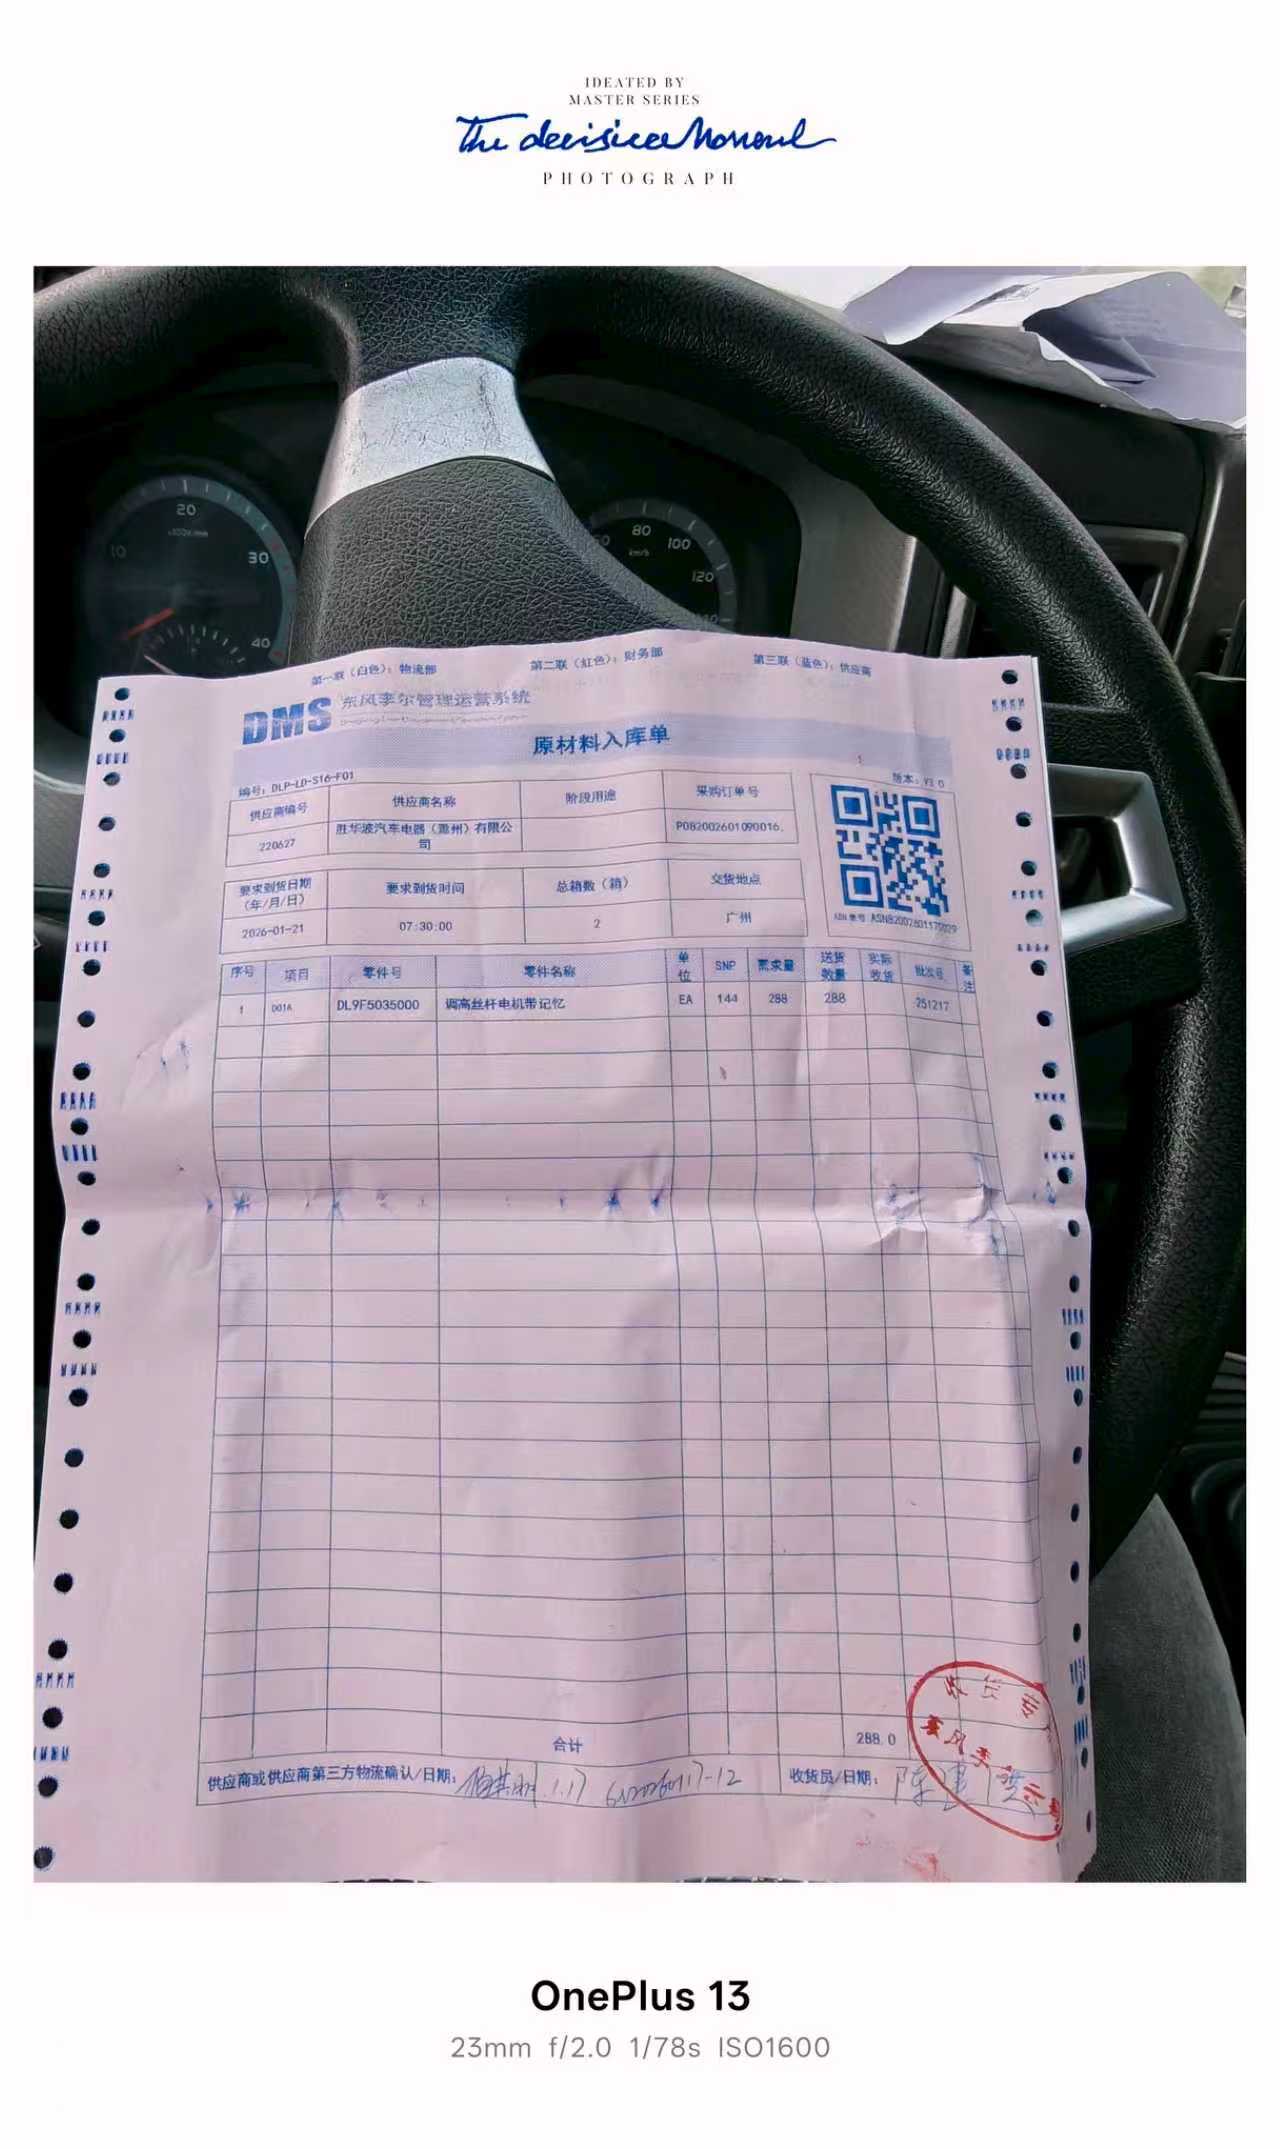 IDEATED BY
MASTER SERIES
The decisive Moment
PHOTOGRAPH
20
x100r/min
10
30
40
80
km/h
100
120
第一联（白色）：物流部 第二联（红色）：财务部 第三联（蓝色）：供应商
DMS 东风李尔管理运营系统
原材料入库单
编号：DLP-LD-S16-F01 版本：V1.0
供应商编号 供应商名称 阶段用途 采购订单号
220627 胜华波汽车电器（滁州）有限公司 P082002601090016.
要求到货日期（年/月/日） 要求到货时间 总箱数（箱） 交货地点
2026-01-21 07:30:00 2 广州
ASN单号 ASN82002601170029
序号 项目 零件号 零件名称 单位 SNP 需求量 送货数量 实际收货 批次号 备注
1 D01A DL9F5035000 调高丝杆电机带记忆 EA 144 288 288 251217
合计 288.0
供应商或供应商第三方物流确认/日期： 1.17 收货员/日期：
收货专
东风李
OnePlus 13
23mm f/2.0 1/78s ISO1600